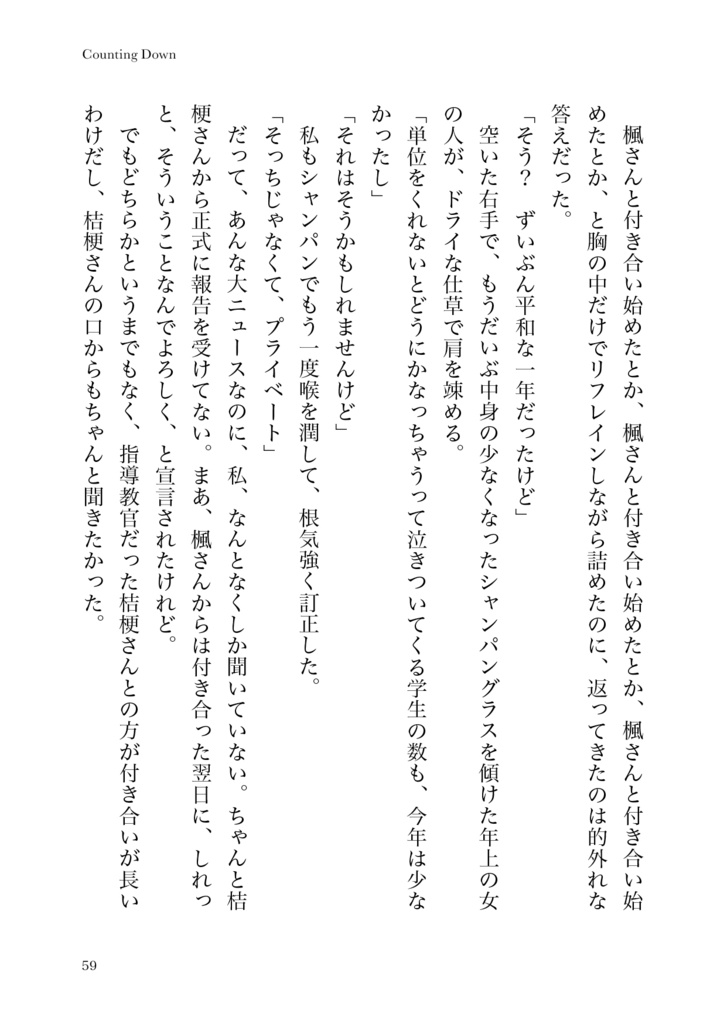 Counting Down
　楓さんと付き合い始めたとか、楓さんと付き合い始めたとか、楓さんと付き合い始
めたとか、と胸の中だけでリフレインしながら詰めたのに、返ってきたのは的外れな
答えだった。
「そう？　ずいぶん平和な一年だったけど」
　空いた右手で、もうだいぶ中身の少なくなったシャンパングラスを傾けた年上の女
の人が、ドライな仕草で肩を竦める。
「単位をくれないとどうにかなっちゃうって泣きついてくる学生の数も、今年は少な
かったし」
「それはそうかもしれませんけど」
　私もシャンパンでもう一度喉を潤して、根気強く訂正した。
「そっちじゃなくて、プライベート」
　だって、あんな大ニュースなのに、私、なんとなくしか聞いていない。ちゃんと桔
梗さんから正式に報告を受けてない。まあ、楓さんからは付き合った翌日に、しれっ
と、そういうことなんでよろしく、と宣言されたけれど。
　でもどちらかというまでもなく、指導教官だった桔梗さんとの方が付き合いが長い
わけだし、桔梗さんの口からもちゃんと聞きたかった。
59